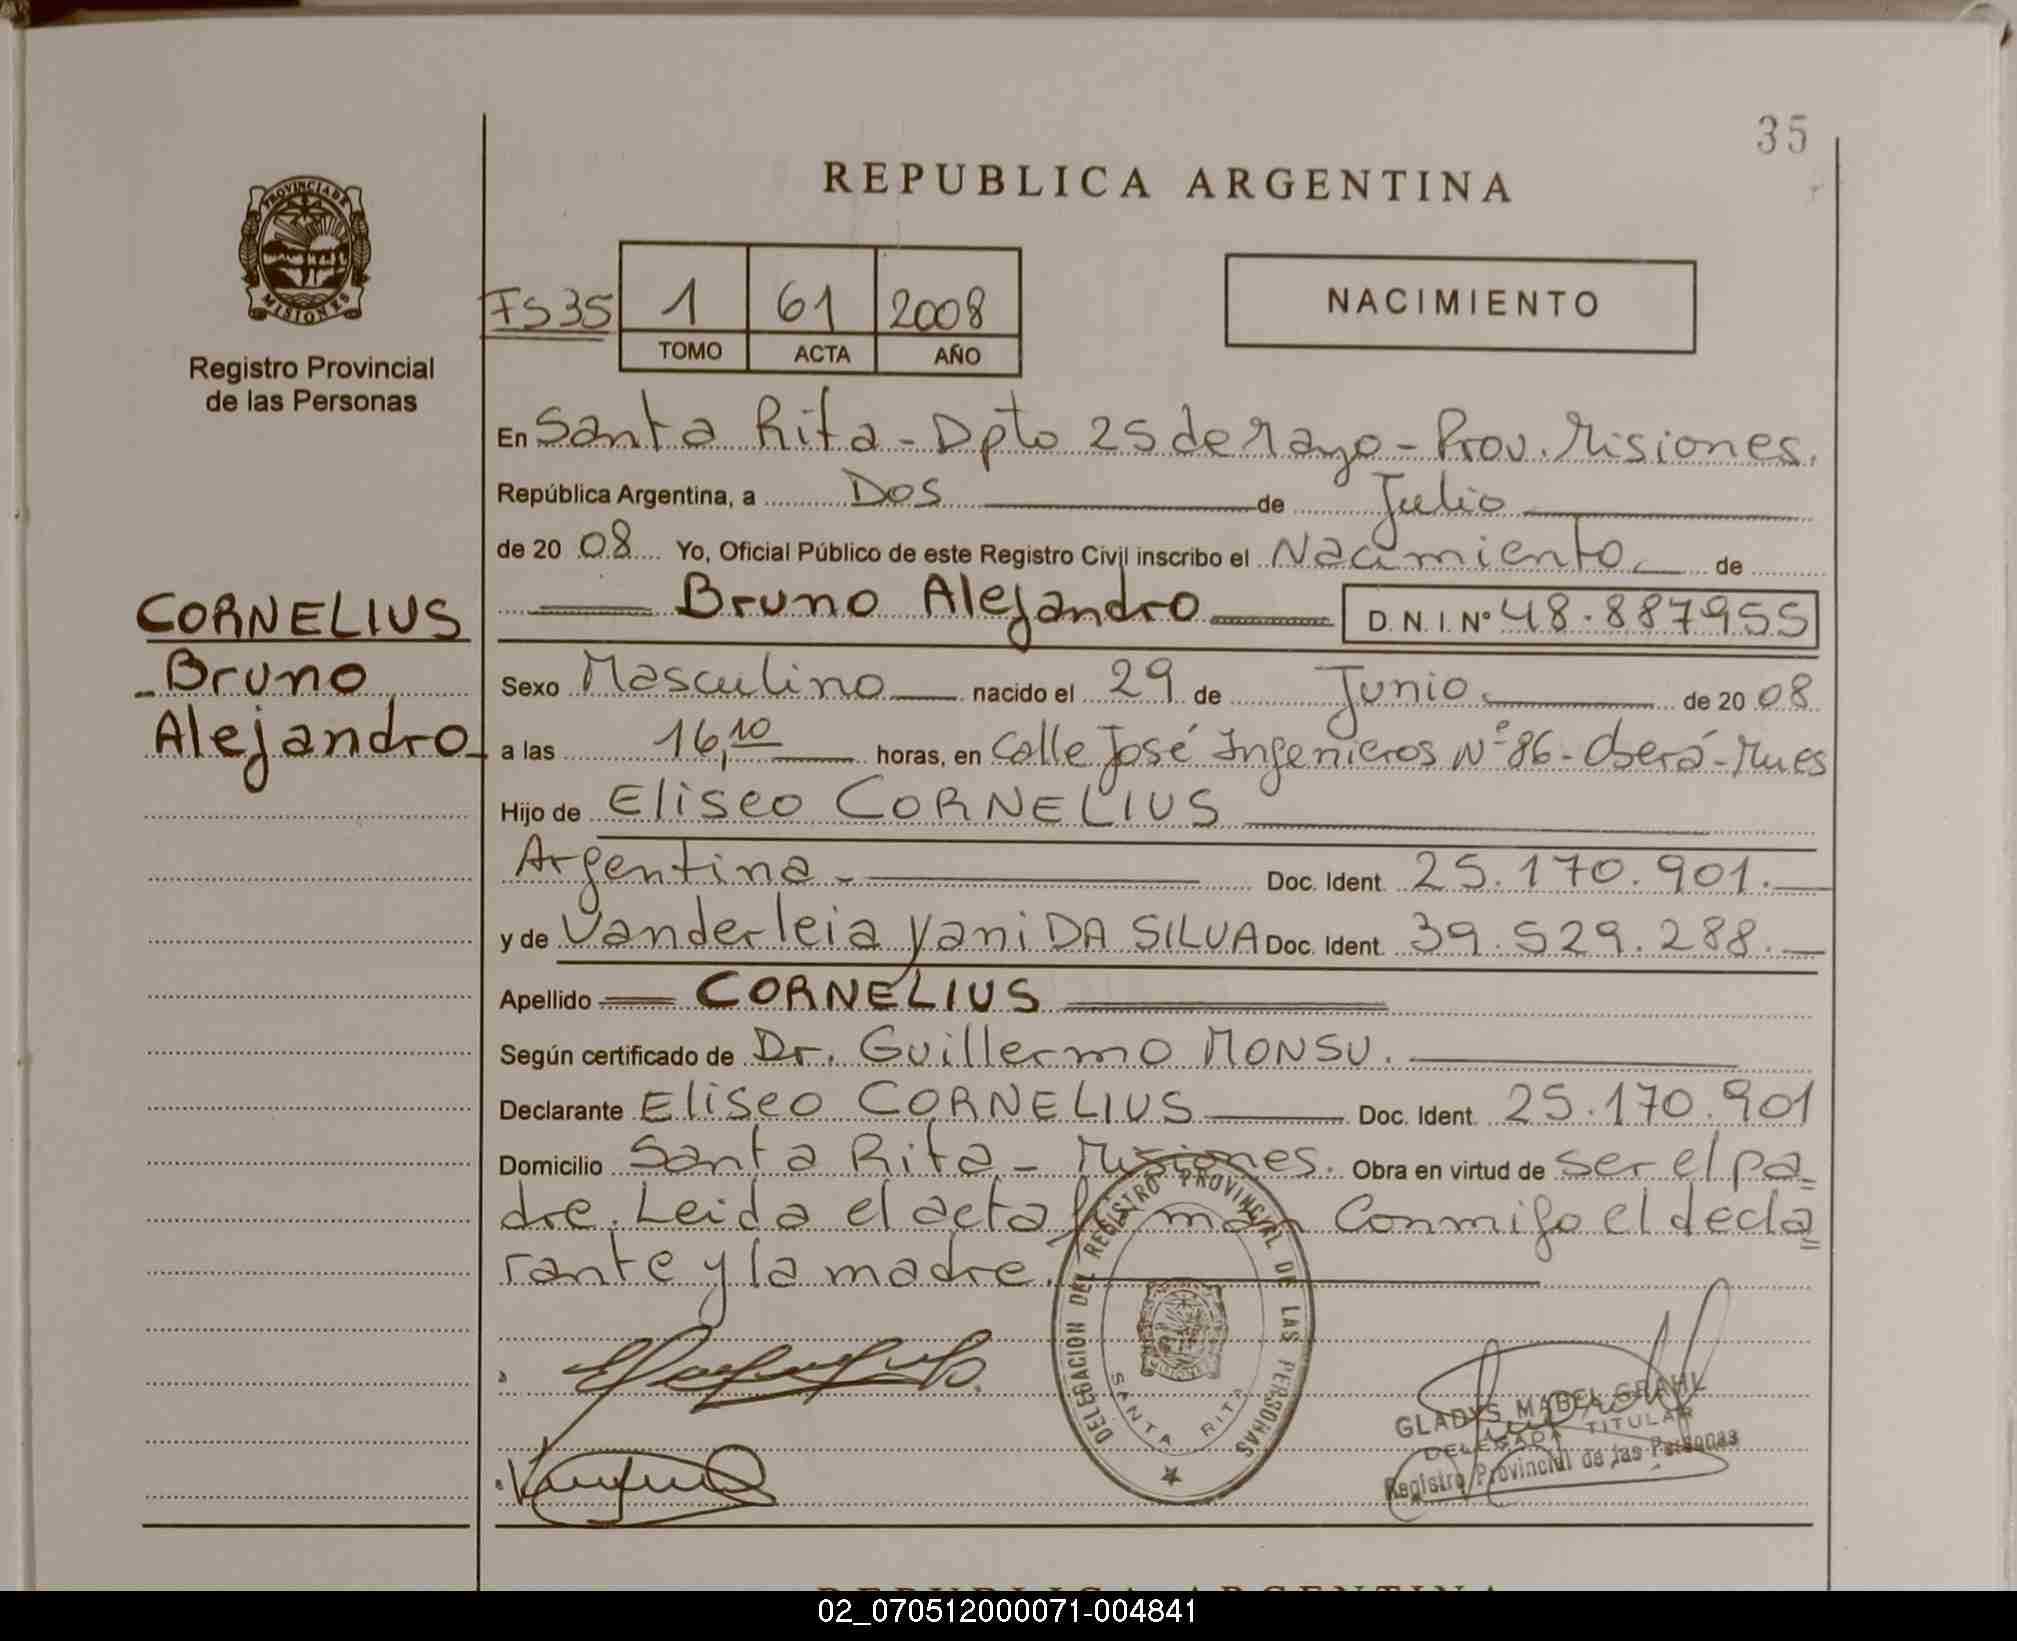 35
REPUBLICA ARGENTINA
PROVINCIA DE
MISIONES
Registro Provincial
de las Personas
FS 35 1 61 2008
TOMO ACTA AÑO
NACIMIENTO
En Santa Rita - Dpto 25 de Mayo - Prov. Misiones.
República Argentina, a Dos de Julio
de 20 08 Yo, Oficial Público de este Registro Civil inscribo el Nacimiento de
Bruno Alejandro D.N.I. Nº 48.887955
CORNELIUS
Bruno
Alejandro
Sexo Masculino nacido el 29 de Junio de 20 08
a las 16,10 horas, en Calle José Ingenieros Nº 86 - Oberá - Mnes
Hijo de Eliseo CORNELIUS
Argentina - Doc. Ident. 25.170.901.
y de Vanderleia Yani DA SILVA Doc. Ident. 39.529.288.
Apellido CORNELIUS
Según certificado de Dr. Guillermo MONSU.
Declarante Eliseo CORNELIUS Doc. Ident. 25.170.901
Domicilio Santa Rita - Misiones. Obra en virtud de ser el pa
dre. Leida el acta firman Conmigo el decla
rante y la madre.
DELEGACION DEL REGISTRO PROVINCIAL DE LAS PERSONAS
SANTA RITA
GLADYS MABEL GRAHL
DELEGADA TITULAR
Registro Provincial de las Personas
REPUBLICA ARGENTINA
02_070512000071-004841